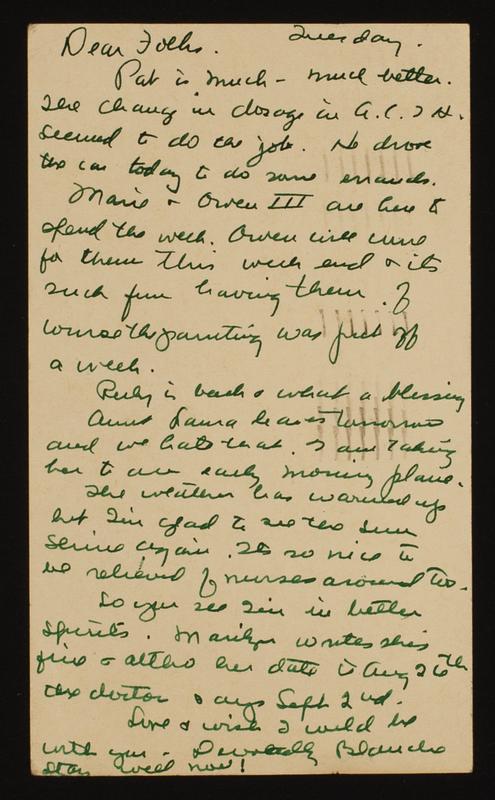 Dear Folks. Tuesday.
Pat is much - much better.
The change in dosage in A.C.T.H.
seemed to do the job. He drove
the car today to do some errands.
Marie & Owen III are here to
spend the week. Owen will come
for them this week end & its
such fun having them. Of
course the painting was put off
a week.
Ruby is back & what a blessing
Aunt Laura leaves tomorrow
and we hate that. I am taking
her to an early morning plane.
The weather has warmed up
but I'm glad to see the sun
shine again. Its so nice to
be relieved of nurses around too.
So you see I'm in better
spirits. Marilyn writes shes
fine & altho her date is Aug 26th
the doctor says Sept 2nd.
Love & wish I could be
with you - Devotedly Blanche
Stay well now!